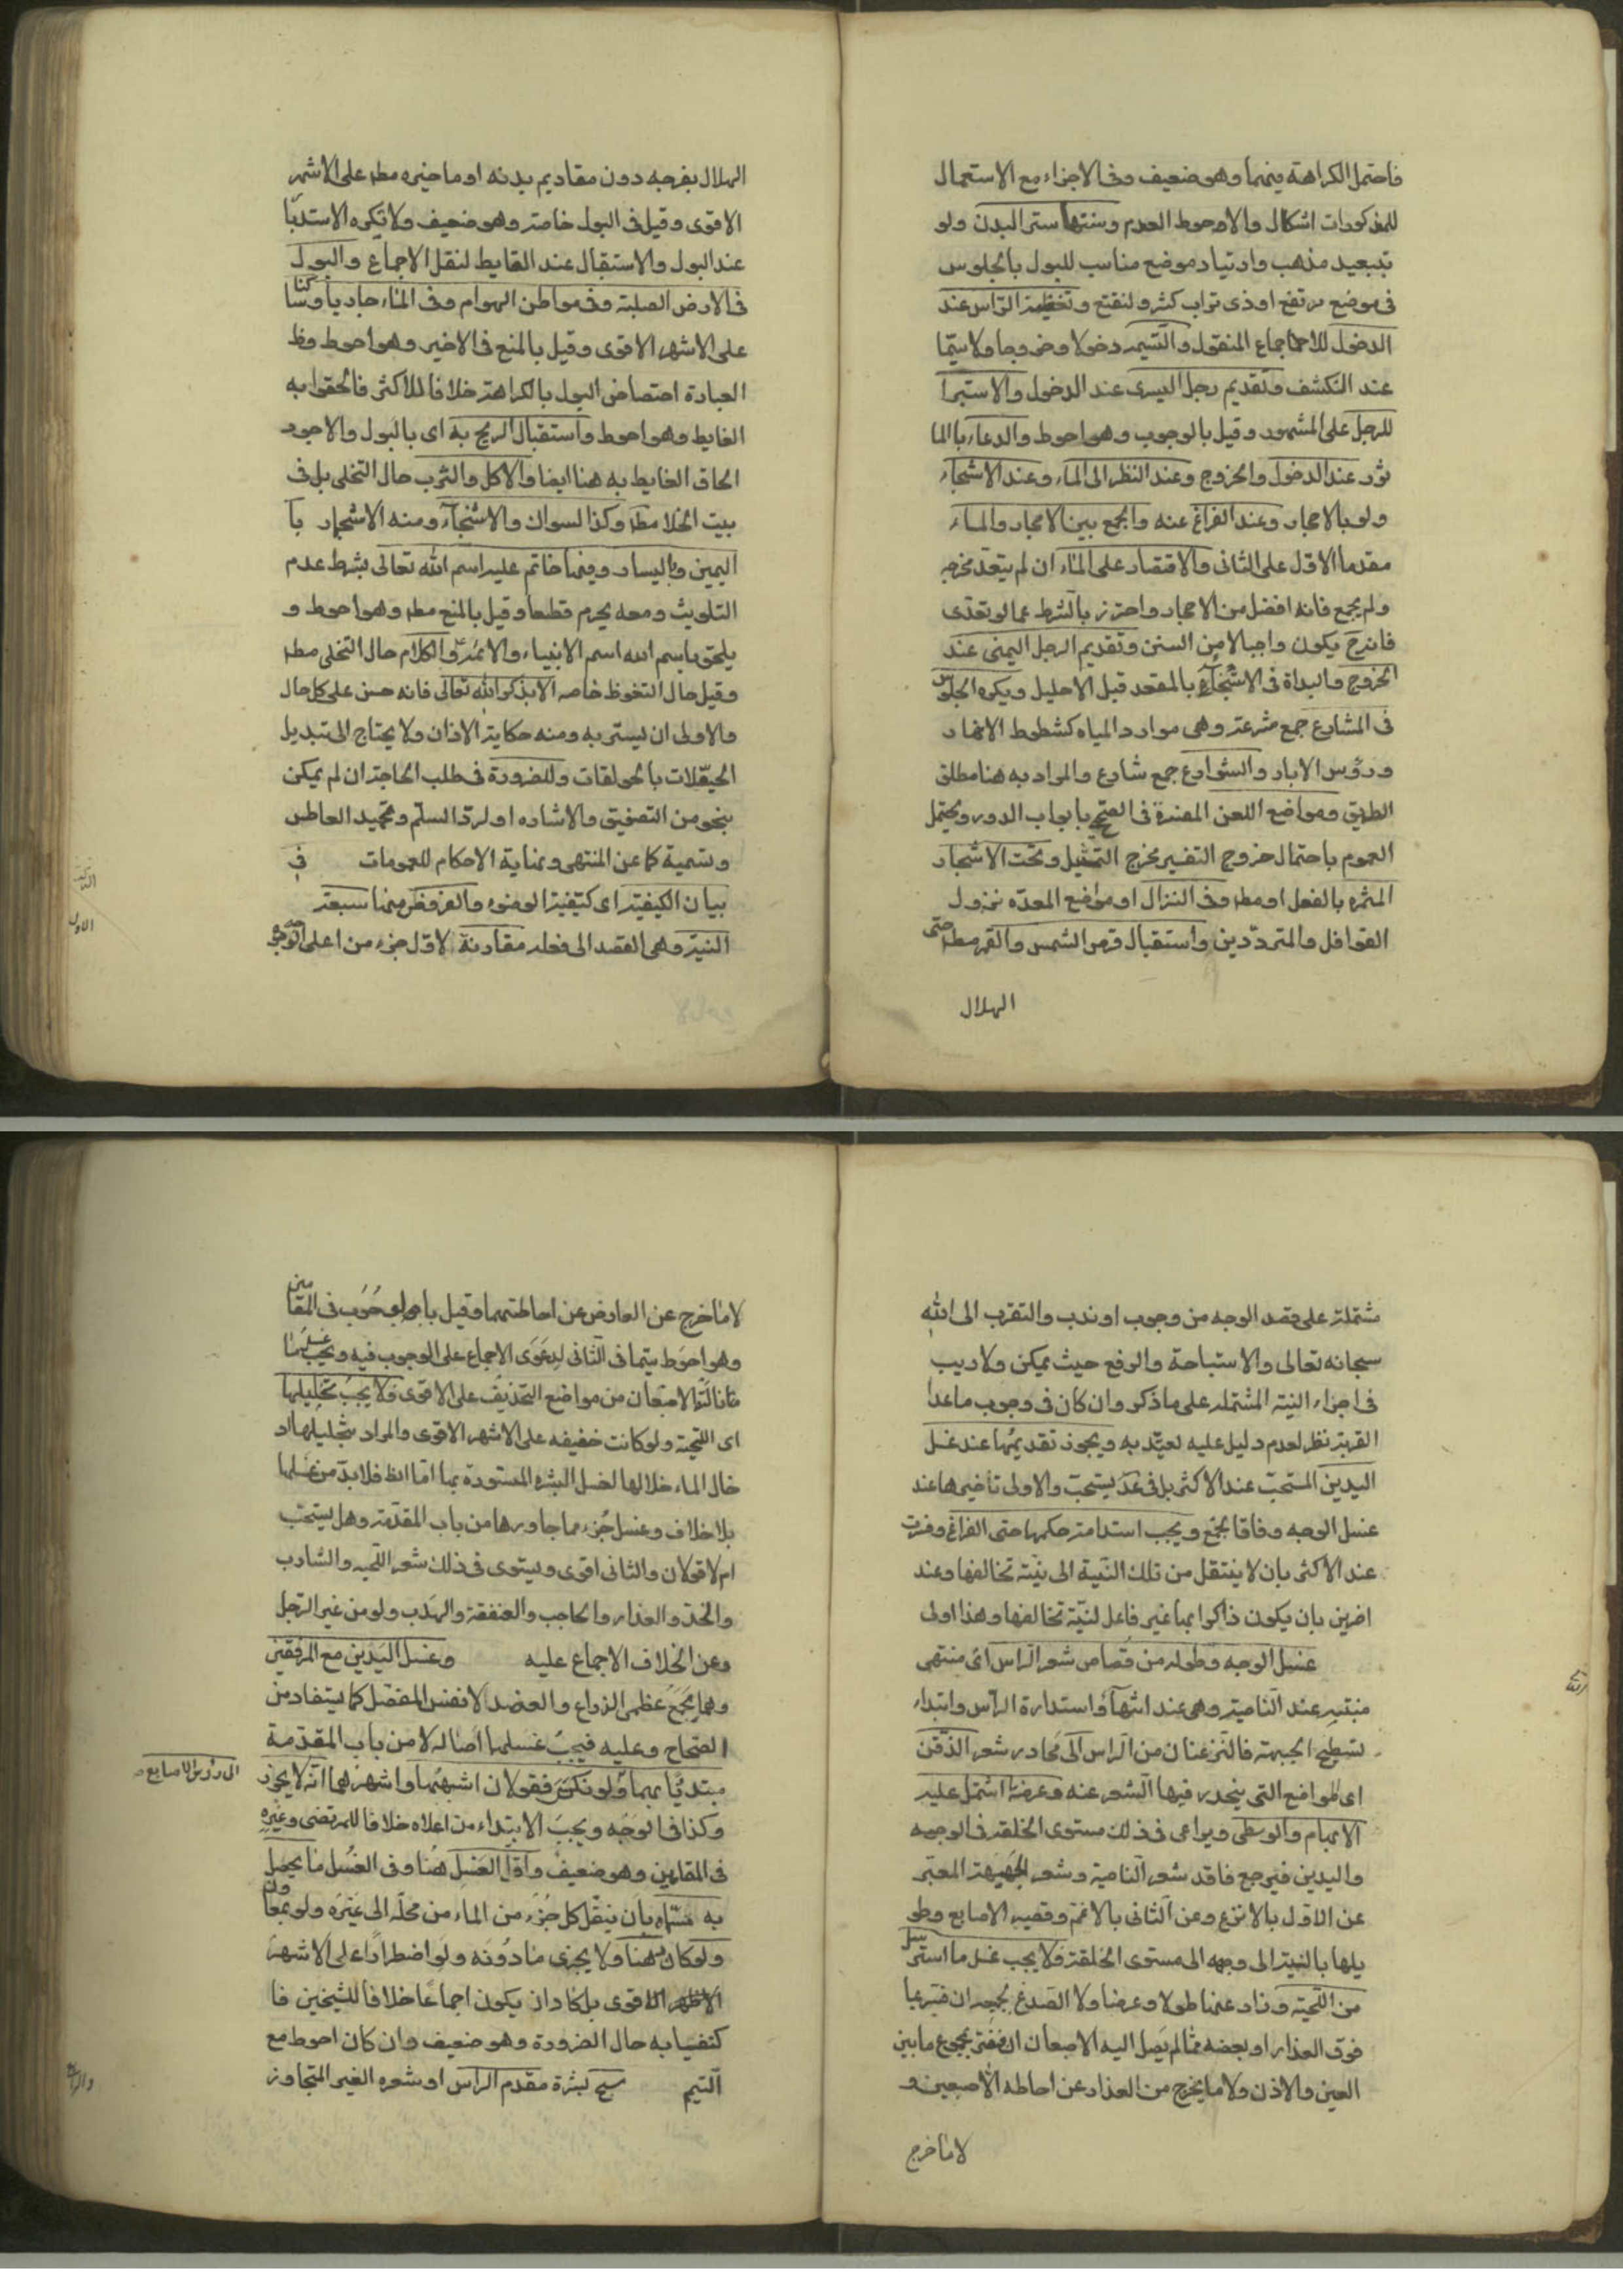 فاحتمل الكراهة فيهما وهو ضعيف وفى الاجزاء مع الاستعمال
للمذكورات اشكال والاحوط العدم وسننها ستر البدن ولو
بتبعيد مذهب وارتياد موضع مناسب للبول بالجلوس
فى موضع مرتفع او ذى تراب كثير ولنقتع وتغطية الراس عند
الدخول للاجماع المنقول والتسمية دخولا وخروجا ولا سيما
عند التكشف وتقديم رجل اليسرى عند الدخول والاستبرا
للرجل على المشهور وقيل بالوجوب وهو احوط والدعاء بالما
ثور عند الدخول والخروج وعند النظر الى الماء وعند الاستنجاء
ولو بالاحجار وعند الفراغ عنه والجمع بين الاحجار والماء
مقدما الاول على الثانى والاقتصار على الماء ان لم يتعد مخرجه
ولم يجمع فانه افضل من الاحجار واحترز بالشرط عما لو تعدى
فانه ح يكون واجبا لا من السنن وتقديم الرجل اليمنى عند
الخروج والبداة فى الاستنجاء بالمقعد قبل الاحليل ويكره الجلوس
فى المشارع جمع مشرعة وهى موارد المياه كشطوط الانهار
ورؤس الابار والشوارع جمع شارع والمراد به هنا مطلق
الطريق ومواضع اللعن المفسرة فى الصحيح بابواب الدور ويحتمل
العموم باحتمال خروج التفسير مخرج التمثيل وتحت الاشجار
المثمره بالفعل او مطه وفى النزال او مواضع المعدة نزول
القوافل والمترددين واستقبال قرص الشمس والقمر مطه حتى
الهلال
الهلال بفرجه دون مقاديم بدنه او ما خيره مطه على الاشهر
الاقوى وقيل فى البول خاصة وهو ضعيف ولا تكره الاستدبا
عند البول والاستقبال عند الغايط لنقل الاجماع والبول
فى الارض الصلبة وفى مواطن الهوام وفى الماء جاريا وراكدا
على الاشهر الاقوى وقيل بالمنع فى الاخير وهو احوط وظ
العبارة اختصاص البول بالكراهة خلافا للاكثر فالحقوا به
الغايط وهو احوط واستقبال الريح به اى بالبول والاجود
الحاق الغايط به هنا ايضا والاكل والشرب حال التخلى بل فى
بيت الخلا مطه وكذا السواك والاستنجاء ومنه الاستجمار با
اليمين وباليسار وفيها خاتم عليه اسم الله تعالى بشرط عدم
التلويث ومعه يحرم قطعا وقيل بالمنع مطه وهو احوط و
يلحق باسم الله اسم الانبياء والائمة والكلام حال التخلى مطه
وقيل حال التغوط خاصه الا بذكر الله تعالى فانه حسن على كل حال
والاولى ان يستر به ومنه حكاية الاذان ولا يحتاج الى تبديل
الحيعلات بالحولقات وللضرورة فى طلب الحاجة ان لم يمكن
بنحو من التصفيق والاشاره او لرد السلم وتحميد العاطس
وتسمية كما عن المنتهى ونهاية الاحكام للعمومات فى
بيان الكيفية اى كيفية الوضوء والفروض منها سبعة
النية وهى القصد الى فعله مقارنة لاول جزء من اعلى الوجه
الاول
مشتملة على قصد الوجه من وجوب او ندب والتقرب الى الله
سبحانه تعالى والاستباحة والرفع حيث يمكن ولا ريب
فى اجزاء النية المشتمله على ما ذكر وان كان فى وجوب ماعدا
القربة نظر لعدم دليل عليه يعتد به ويجوز تقديمها عند غسل
اليدين المستحب عند الاكثر بل فى عد يستحب والاولى تاخيرها عند
غسل الوجه وفاقا لجمع ويجب استدامة حكمها حتى الفراغ وفسرت
عند الاكثر بان لا ينتقل من تلك النية الى نية تخالفها وعند
اخرين بان يكون ذاكرا بها غير فاعل لنية تخالفها وهذا اولى
غسل الوجه وطوله من قصاص شعر الراس اى منتهى
منبته عند الناصية وهى عند انتهاء استدارة الراس وابتداء
تسطيح الجبهة فالنزعتان من الراس الى محادر شعر الذقن
اى المواضع التى ينحدر فيها الشعر عنه وعرضا اشتمل عليه
الابهام والوسطى ويراعى فى ذلك مستوى الخلقة فى الوجه
واليدين فيرجع فاقد شعر الناصية وشعر الجبهة المعتبر
عن الاول بالانزع وعن الثانى بالاغم وقصير الاصابع وطو
يلها بالنسبة الى وجهه الى مستوى الخلقة ولا يجب غسل ما استرسل
من اللحية وزاد عنها طولا وعرضا ولا الصدغ
فوق العذار او بعضه مما لم يصل اليه الاصبعان مجموع ما بين
العين والاذن ولا ما يخرج من العذار عن احاطه الاصبعين و
لا ما خرج
لا ما خرج عن العارض عن احاطتهما وقيل بالوجوب فى المقامين
وهو احوط سيما فى الثانى لدعوى الاجماع على الوجوب فيه ويجب غسل ما
نالته الاصبعان من مواضع التحذيف على الاقوى ولا يجب تخليلها
اى اللحية ولو كانت خفيفه على الاشهر الاقوى والمراد بتخليلها اد
خال الماء خلالها لغسل البشره المستورة بها اما الظ فلا بد من غسلها
بلا خلاف وغسل جزء مما جاورها من باب المقدمة وهل يستحب
ام لا قولان والثانى اقوى ويستوى فى ذلك شعر اللحيه والشارب
والخد والعذار والحاجب والعنفقة والهدب ولو من غير الرجل
وعن الخلاف الاجماع عليه وغسل اليدين مع المرفقين
وهما مجمع عظمى الذراع والعضد لا نفس المفصل كما يستفاد من
الصحاح وعليه فيجب غسلهما اصالة لا من باب المقدمة
مبتدئا بهما ولو نكس فقولان اشبههما واشهرهما انه لا يجوز
الى رؤس الاصابع
وكذا فى الوجه ويجب الابتداء من اعلاه خلافا للمرتضى وغيره
فى المقامين وهو ضعيف واقل الغسل هنا وفى الغسل ما يحصل
به مسماه بان ينتقل كل جزء من الماء من محله الى غيره ولو بمعاون
ولو كان دهنا ولا يجزى ما دونه ولو اضطرارا على الاشهر
الاقوى بل كاد ان يكون اجماعا خلافا للشيخين فا
كتفيا به حال الضرورة وهو ضعيف وان كان احوط مع
التيمم مسح بشرة مقدم الراس او شعره الغير المتجاوز
والرابع